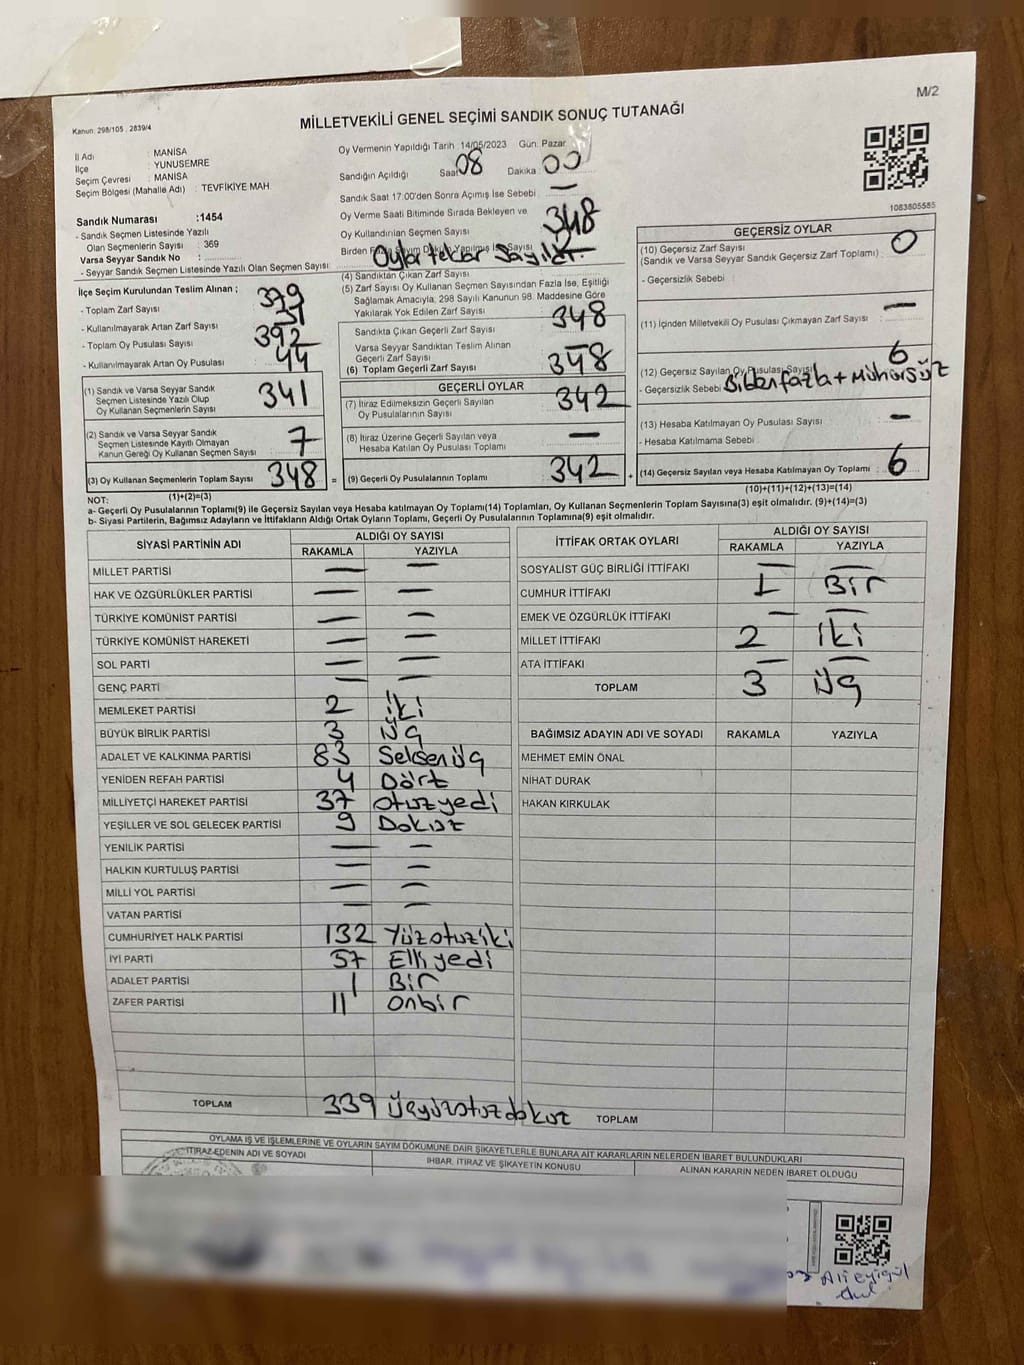 M/2
Kanun. 298/105 , 2839/4
MİLLETVEKİLİ GENEL SEÇİMİ SANDIK SONUÇ TUTANAĞI
İl Adı : MANİSA
İlçe : YUNUSEMRE
Seçim Çevresi : MANİSA
Seçim Bölgesi (Mahalle Adı) : TEVFİKİYE MAH
Sandık Numarası :1454
- Sandık Seçmen Listesinde Yazılı
Olan Seçmenlerin Sayısı : 369
Varsa Seyyar Sandık No :
- Seyyar Sandık Seçmen Listesinde Yazılı Olan Seçmen Sayısı:
Oy Vermenin Yapıldığı Tarih :14/05/2023 Gün: Pazar
Sandığın Açıldığı Saat 08 Dakika : 00
Sandık Saat 17:00'den Sonra Açımış İse Sebebi : —
Oy Verme Saati Bitiminde Sırada Bekleyen ve
Oy Kullandırılan Seçmen Sayısı : 348
Birden Sayım Yapılmış İse Sayısı
Oylar tekrar Sayıldı.
1083805585
İlçe Seçim Kurulundan Teslim Alınan ;
- Toplam Zarf Sayısı : 379
- Kullanılmayarak Artan Zarf Sayısı : 31
- Toplam Oy Pusulası Sayısı : 392
- Kullanılmayarak Artan Oy Pusulası : 44
(1) Sandık ve Varsa Seyyar Sandık
Seçmen Listesinde Yazılı Olup
Oy Kullanan Seçmenlerin Sayısı : 341
(2) Sandık ve Varsa Seyyar Sandık
Seçmen Listesinde Kayıtlı Olmayan
Kanun Gereği Oy Kullanan Seçmen Sayısı : 7
(3) Oy Kullanan Seçmenlerin Toplam Sayısı : 348
(4) Sandıktan Çıkan Zarf Sayısı
(5) Zarf Sayısı Oy Kullanan Seçmen Sayısından Fazla İse, Eşitliği
Sağlamak Amacıyla, 298 Sayılı Kanunun 98. Maddesine Göre
Yakılarak Yok Edilen Zarf Sayısı :
Sandıkta Çıkan Geçerli Zarf Sayısı : 348
Varsa Seyyar Sandıktan Teslim Alınan
Geçerli Zarf Sayısı : —
(6) Toplam Geçerli Zarf Sayısı : 348
GEÇERLİ OYLAR
(7) İtiraz Edilmeksizin Geçerli Sayılan
Oy Pusulalarının Sayısı : 342
(8) İtiraz Üzerine Geçerli Sayılan veya
Hesaba Katılan Oy Pusulası Toplamı : —
(9) Geçerli Oy Pusulalarının Toplamı : 342
GEÇERSİZ OYLAR
(10) Geçersiz Zarf Sayısı
(Sandık ve Varsa Seyyar Sandık Geçersiz Zarf Toplamı) : 0
- Geçersizlik Sebebi :
(11) İçinden Milletvekili Oy Pusulası Çıkmayan Zarf Sayısı : —
(12) Geçersiz Sayılan Oy Pusulası Sayısı 6
- Geçersizlik Sebebi Birden fazla + Mühürsüz
(13) Hesaba Katılmayan Oy Pusulası Sayısı : —
- Hesaba Katılmama Sebebi
(14) Geçersiz Sayılan veya Hesaba Katılmayan Oy Toplamı : 6
(10)+(11)+(12)+(13)=(14)
NOT: (1)+(2)=(3)
a- Geçerli Oy Pusulalarının Toplamı(9) ile Geçersiz Sayılan veya Hesaba katılmayan Oy Toplamı(14) Toplamları, Oy Kullanan Seçmenlerin Toplam Sayısına(3) eşit olmalıdır. (9)+(14)=(3)
b- Siyasi Partilerin, Bağımsız Adayların ve İttifakların Aldığı Ortak Oyların Toplamı, Geçerli Oy Pusulalarının Toplamına(9) eşit olmalıdır.
SİYASİ PARTİNİN ADI ALDIĞI OY SAYISI
RAKAMLA YAZIYLA
MİLLET PARTİSİ — —
HAK VE ÖZGÜRLÜKLER PARTİSİ — —
TÜRKİYE KOMÜNİST PARTİSİ — —
TÜRKİYE KOMÜNİST HAREKETİ — —
SOL PARTİ — —
GENÇ PARTİ — —
MEMLEKET PARTİSİ 2 iki
BÜYÜK BİRLİK PARTİSİ 3 üç
ADALET VE KALKINMA PARTİSİ 83 Seksenüç
YENİDEN REFAH PARTİSİ 4 Dört
MİLLİYETÇİ HAREKET PARTİSİ 37 otuzyedi
YEŞİLLER VE SOL GELECEK PARTİSİ 9 Dokuz
YENİLİK PARTİSİ — —
HALKIN KURTULUŞ PARTİSİ — —
MİLLİ YOL PARTİSİ — —
VATAN PARTİSİ — —
CUMHURİYET HALK PARTİSİ 132 Yüzotuziki
İYİ PARTİ 57 Elliyedi
ADALET PARTİSİ 1 Bir
ZAFER PARTİSİ 11 onbir
TOPLAM 339 üçyüzotuzdokuz
İTTİFAK ORTAK OYLARI ALDIĞI OY SAYISI
RAKAMLA YAZIYLA
SOSYALİST GÜÇ BİRLİĞİ İTTİFAKI — —
CUMHUR İTTİFAKI 1 Bir
EMEK VE ÖZGÜRLÜK İTTİFAKI — —
MİLLET İTTİFAKI 2 iki
ATA İTTİFAKI — —
TOPLAM 3 üç
BAĞIMSIZ ADAYIN ADI VE SOYADI RAKAMLA YAZIYLA
MEHMET EMİN ÖNAL
NİHAT DURAK
HAKAN KIRKULAK
TOPLAM
OYLAMA İŞ VE İŞLEMLERİNE VE OYLARIN SAYIM DÖKÜMÜNE DAİR ŞİKAYETLERLE BUNLARA AİT KARARLARIN NELERDEN İBARET BULUNDUKLARI
İTİRAZ EDENİN ADI VE SOYADI İHBAR, İTİRAZ VE ŞİKAYETİN KONUSU ALINAN KARARIN NEDEN İBARET OLDUĞU